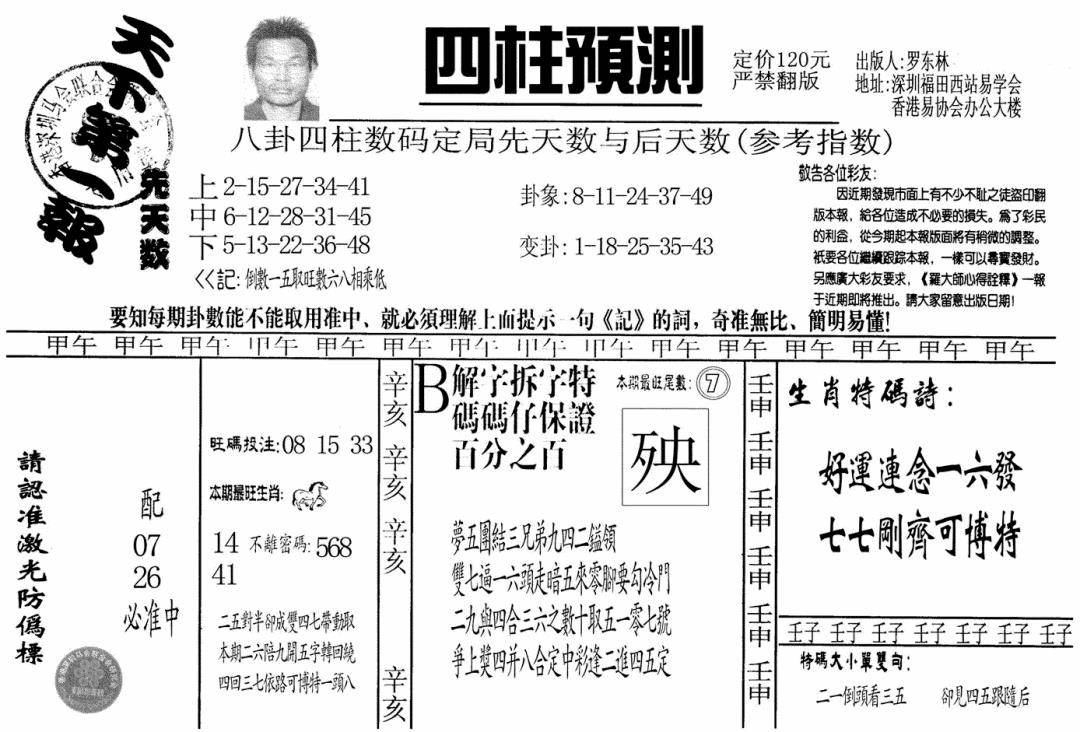 天下第一報
四柱預測
定价120元
严禁翻版
出版人:罗东林
地址:深圳福田西站易学会
香港易协会办公大楼
八卦四柱数码定局先天数与后天数(参考指数)
先天数
上 2-15-27-34-41
中 6-12-28-31-45
下 5-13-22-36-48
卦象:8-11-24-37-49
变卦:1-18-25-35-43
<<記:倒數一五取旺數六八相乘低
敬告各位彩友:
因近期發現市面上有不少不耻之徒盜印翻
版本報，給各位造成不必要的損失。爲了彩民
的利益，從今期起本報版面將有稍微的調整。
衹要各位繼續跟踪本報，一樣可以尋寶發財。
另應廣大彩友要求，《羅大師心得詮釋》一報
于近期即將推出。請大家留意出版日期!
要知每期卦數能不能取用准中、就必須理解上面提示一句《記》的詞，奇准無比、簡明易懂!
甲午 甲午 甲午 甲午 甲午 甲午 甲午 甲午 甲午 甲午 甲午 甲午 甲午 甲午 甲午
請認准激光防僞標
配
07
26
必准中
旺碼投注:08 15 33
本期最旺生肖:
14 不離密碼:568
41
二五對半卻成雙四七帶動取
本期二六陪九開五字轉回繞
四回三七依路可博特一頭八
辛亥
辛亥
辛亥
辛亥
B解字拆字特
碼碼仔保證
百分之百
本期最旺尾數:7
殃
夢五團結三兄弟九四二鎰領
雙七逼一六頭走暗五來零腳要勾冷門
二九與四合三六之數十取五一零七號
爭上獎四并八合定中彩逢二進四五定
壬申
壬申
壬申
壬申
壬申
壬申
生肖特碼詩:
好運連念一六發
七七剛齊可博特
壬子 壬子 壬子 壬子 壬子 壬子 壬子
特碼大小單雙句:
二一倒頭看三五 卻見四五跟隨后